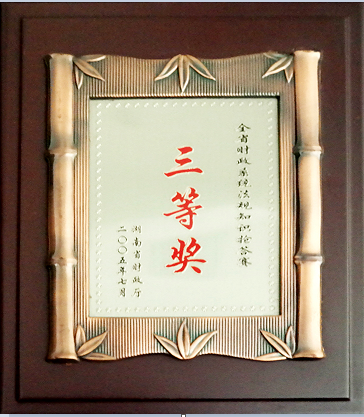 全省财政系统法规知识抢答赛
三等奖
湖南省财政厅
二〇〇五年七月